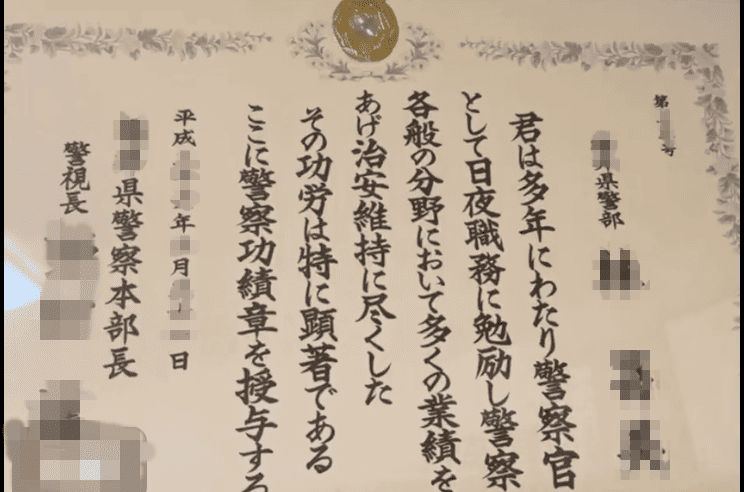 第 号
県警部
君は多年にわたり警察官
として日夜職務に勉励し警察
各般の分野において多くの業績を
あげ治安維持に尽くした
その功労は特に顕著である
ここに警察功績章を授与する
平成 年 月 日
県警察本部長
警視長